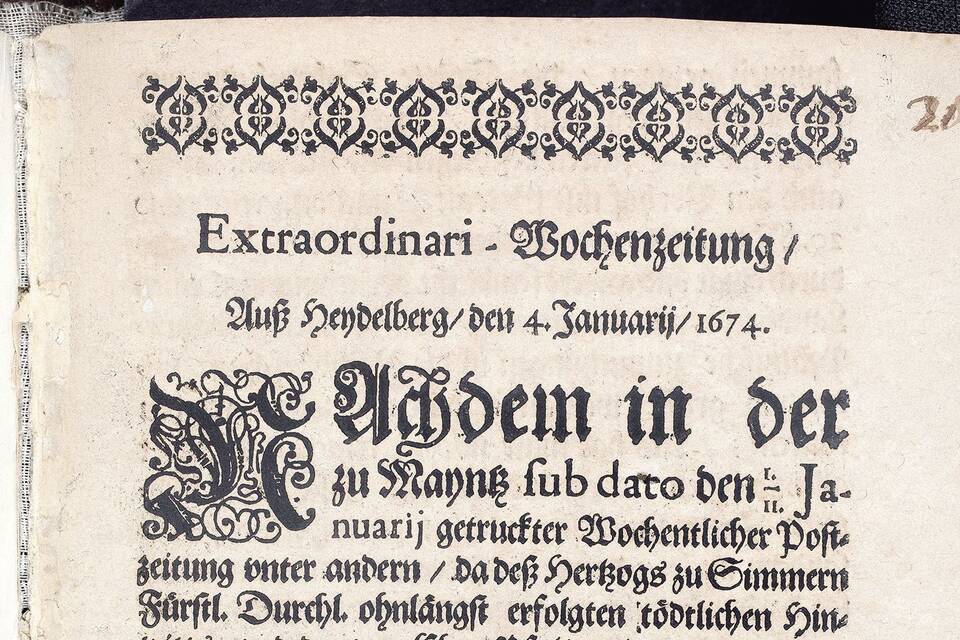 Extraordinari - Wochenzeitung /
Auß Heydelberg / den 4. Januarij / 1674.
NAchdem in der
zu Mayntz sub dato den 1./11. Ja-
nuarij getruckter Wochentlicher Post-
zeitung vnter andern / da deß Hertzogs zu Simmern
Fürstl. Durchl. ohnlängst erfolgten tödtlichen Hin-